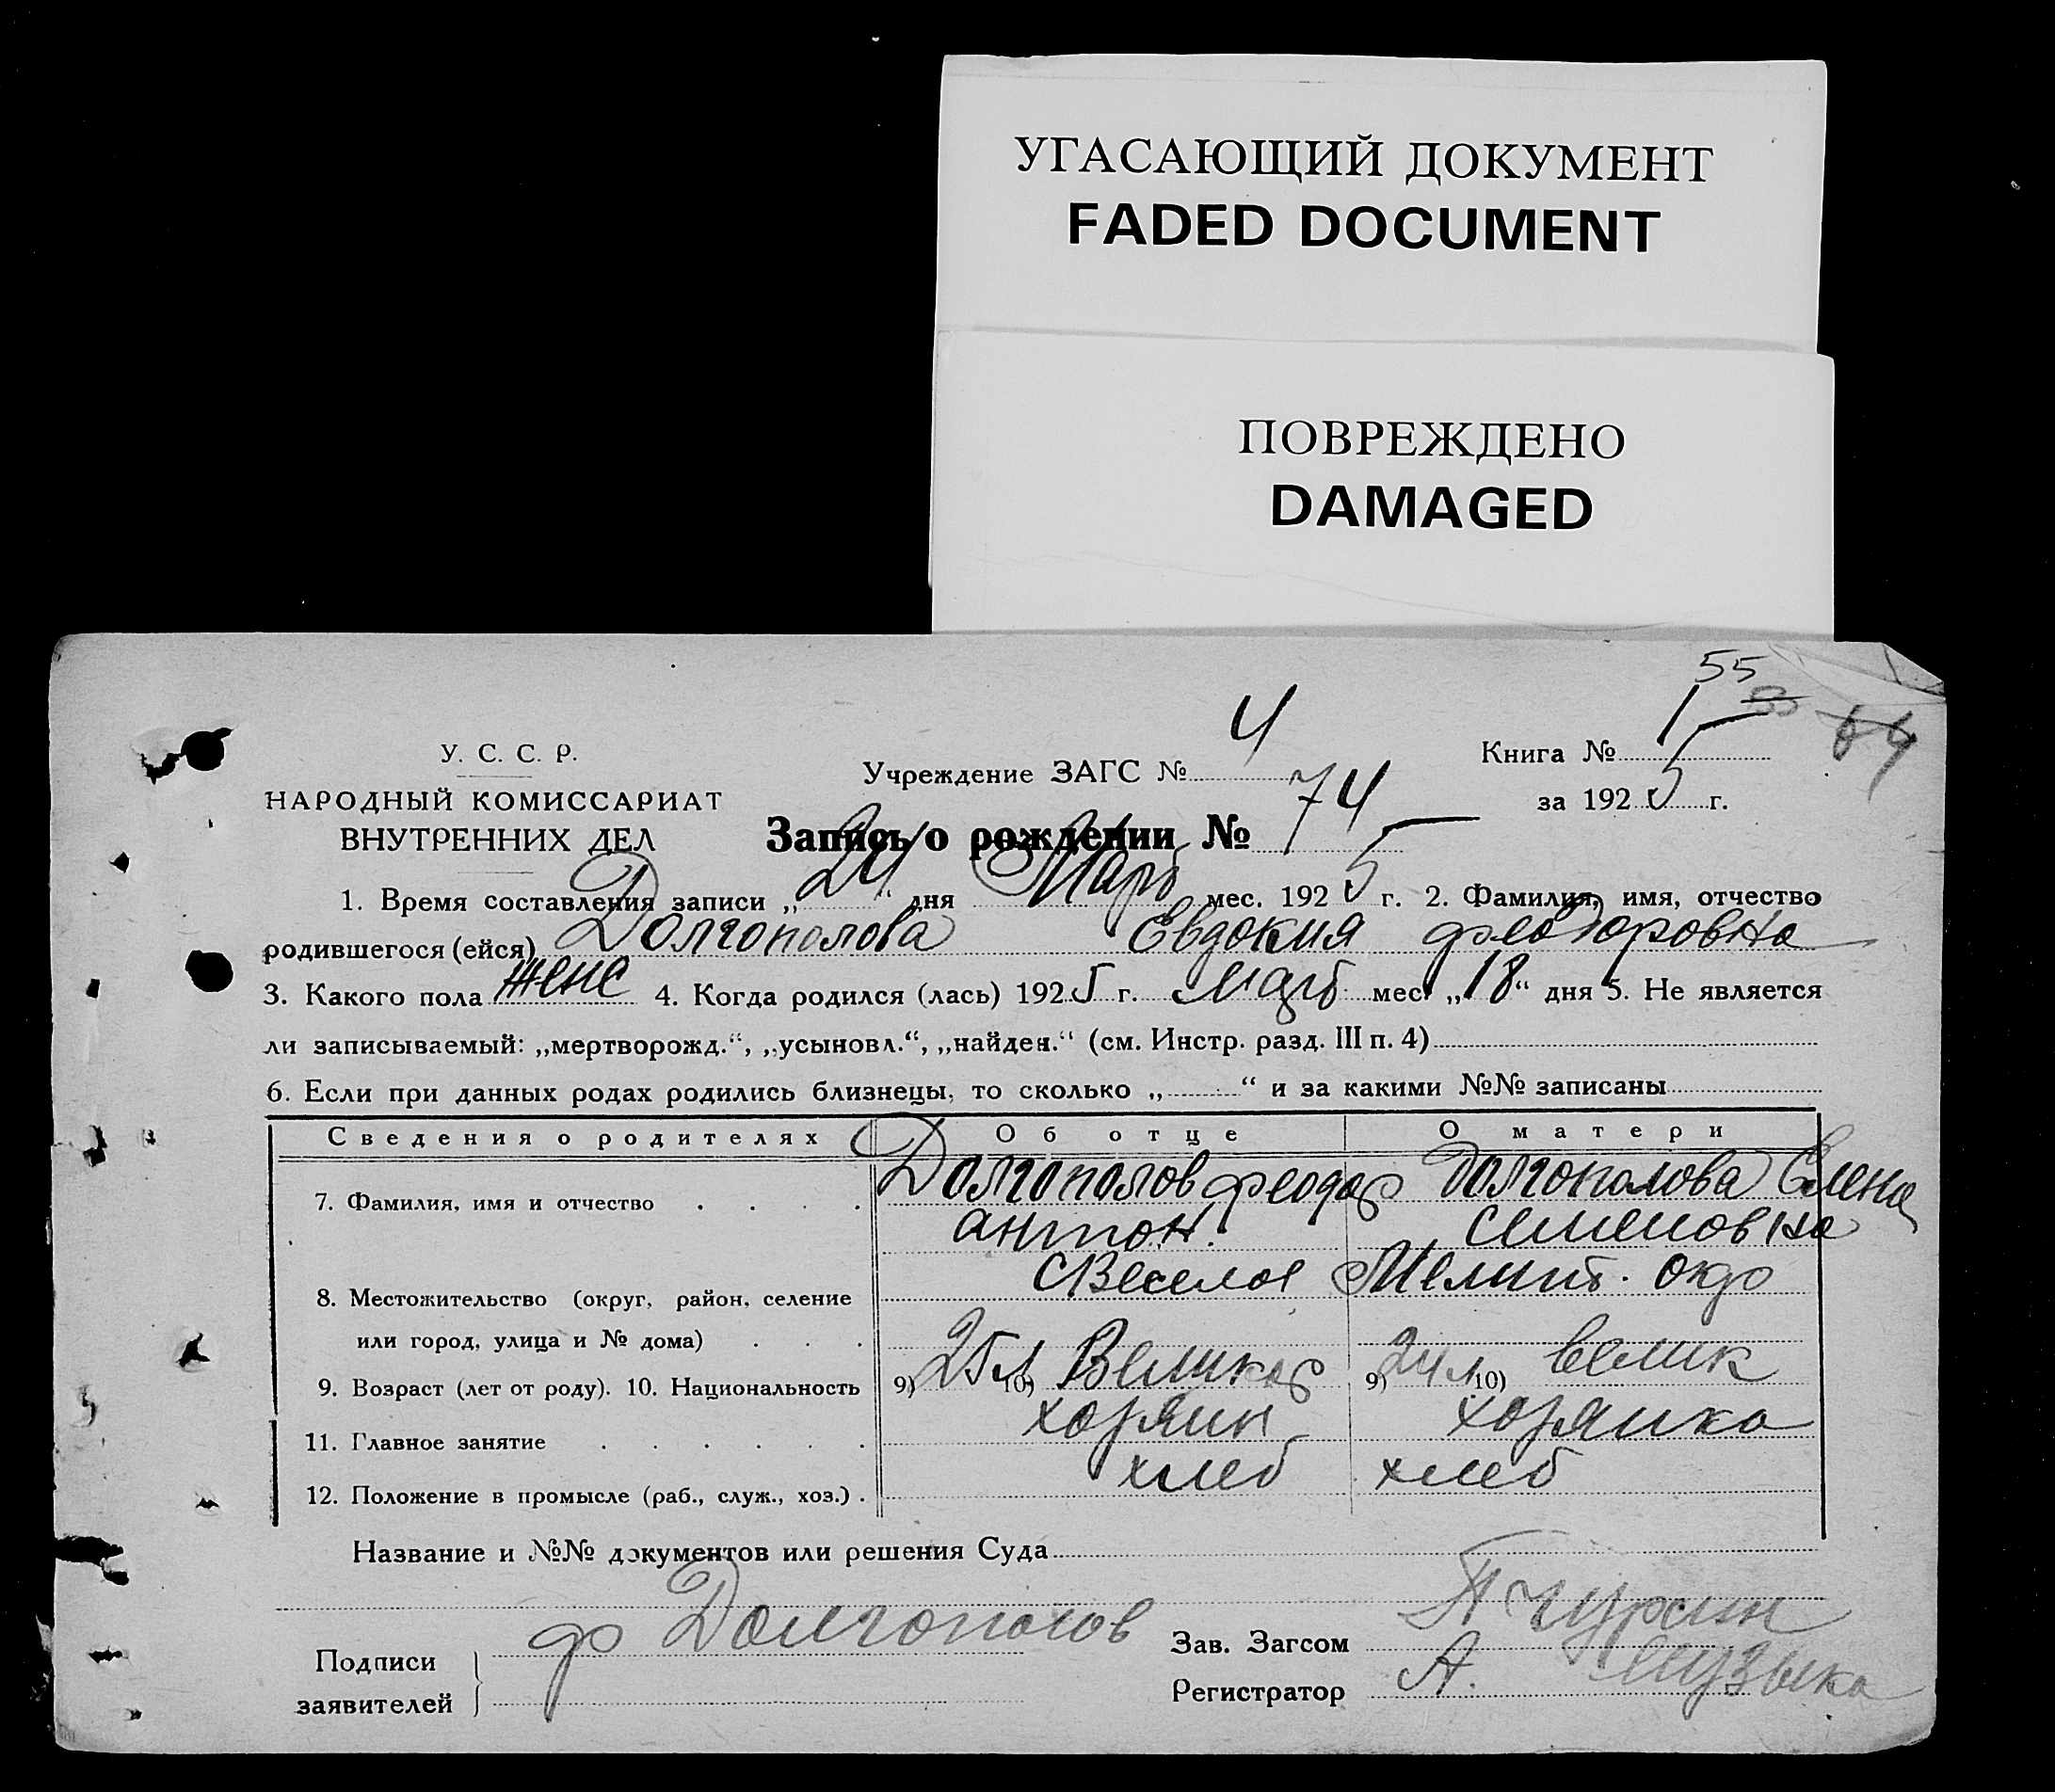 УГАСАЮЩИЙ ДОКУМЕНТ
FADED DOCUMENT
ПОВРЕЖДЕНО
DAMAGED
55
64
У. С. С. Р.
НАРОДНЫЙ КОМИССАРИАТ
ВНУТРЕННИХ ДЕЛ
Учреждение ЗАГС № 4
Книга № 1
за 1925 г.
Запись о рождении № 74
1. Время составления записи „24“ дня Март мес. 1925 г. 2. Фамилия, имя, отчество
родившегося (ейся) Долгополова Евдокия Феодоровна
3. Какого пола женс 4. Когда родился (лась) 1925 г. март мес. „18“ дня 5. Не является
ли записываемый: „мертворожд.“, „усыновл.“, „найден.“ (см. Инстр. разд. III п. 4)
6. Если при данных родах родились близнецы, то сколько „ “ и за какими №№ записаны
Сведения о родителях Об отце О матери
7. Фамилия, имя и отчество Долгополов Феодор Антон. Долгополова Елена Семеновна
8. Местожительство (округ, район, селение С Веселое Мелит. окр
или город, улица и № дома)
9. Возраст (лет от роду). 10. Национальность 9) 25 л 10) Великор 9) 24 л 10) велик
11. Главное занятие хозяин хозяйка
12. Положение в промысле (раб., служ., хоз.) хлеб хлеб
Название и №№ документов или решения Суда
Подписи
заявителей
Ф Долгополов
Зав. Загсом
Регистратор А. Музыка